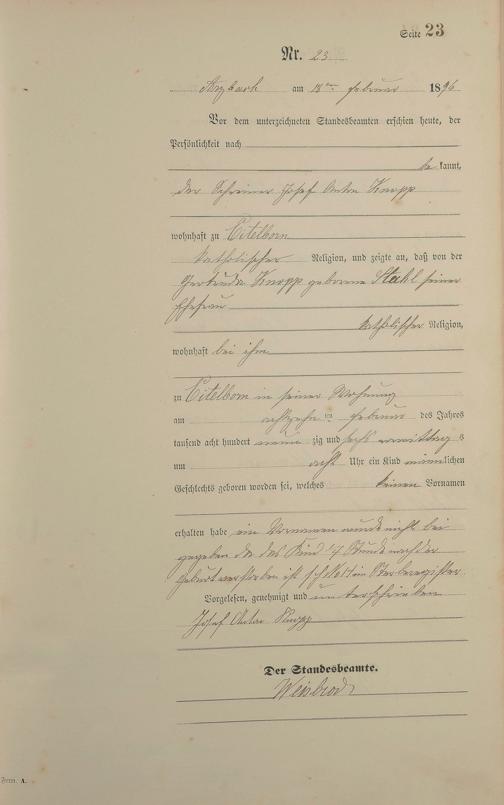 Seite 23
Nr. 23
Arzbach am 18ten Februar 1896
Vor dem unterzeichneten Standesbeamten erschien heute, der
Persönlichkeit nach
be kannt,
der Schreiner Josef Anton Knopp
wohnhaft zu Eitelborn
katholischer Religion, und zeigte an, daß von der
Gertrude Knopp geborene Stahl seiner
Ehefrau
katholischer Religion,
wohnhaft bei ihm
zu Eitelborn in seiner Wohnung
am achtzehn ten Februar des Jahres
tausend acht hundert neun zig und sechs vormittag s
um acht Uhr ein Kind männlichen
Geschlechts geboren worden sei, welches keinen Vornamen
erhalten habe ein Vornamen wurde nicht bei
gegeben da das Kind Stunde nach der
Geburt verstorben ist im Sterberegister
Vorgelesen, genehmigt und unterschrieben
Josef Anton Knopp
Der Standesbeamte.
Weisbrod
Form. A.